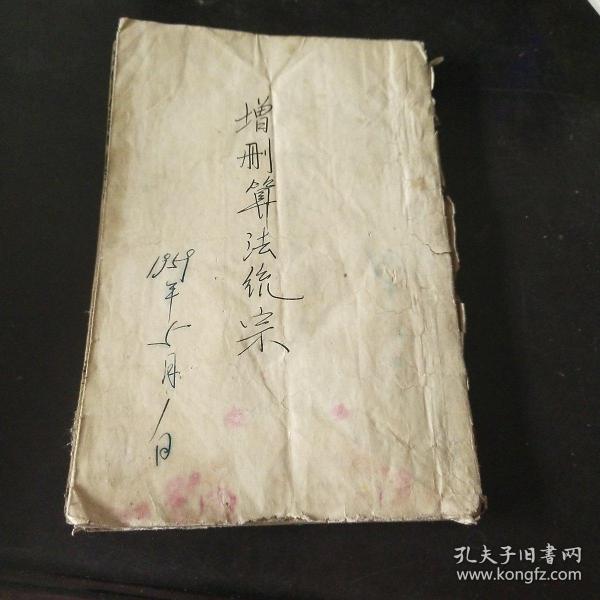 增删算法统宗
1959年5月1日
孔夫子旧書网
www.kongfz.com